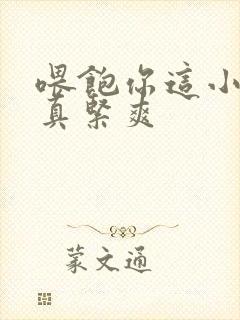 喂飽你這小
真緊爽
蒙文通